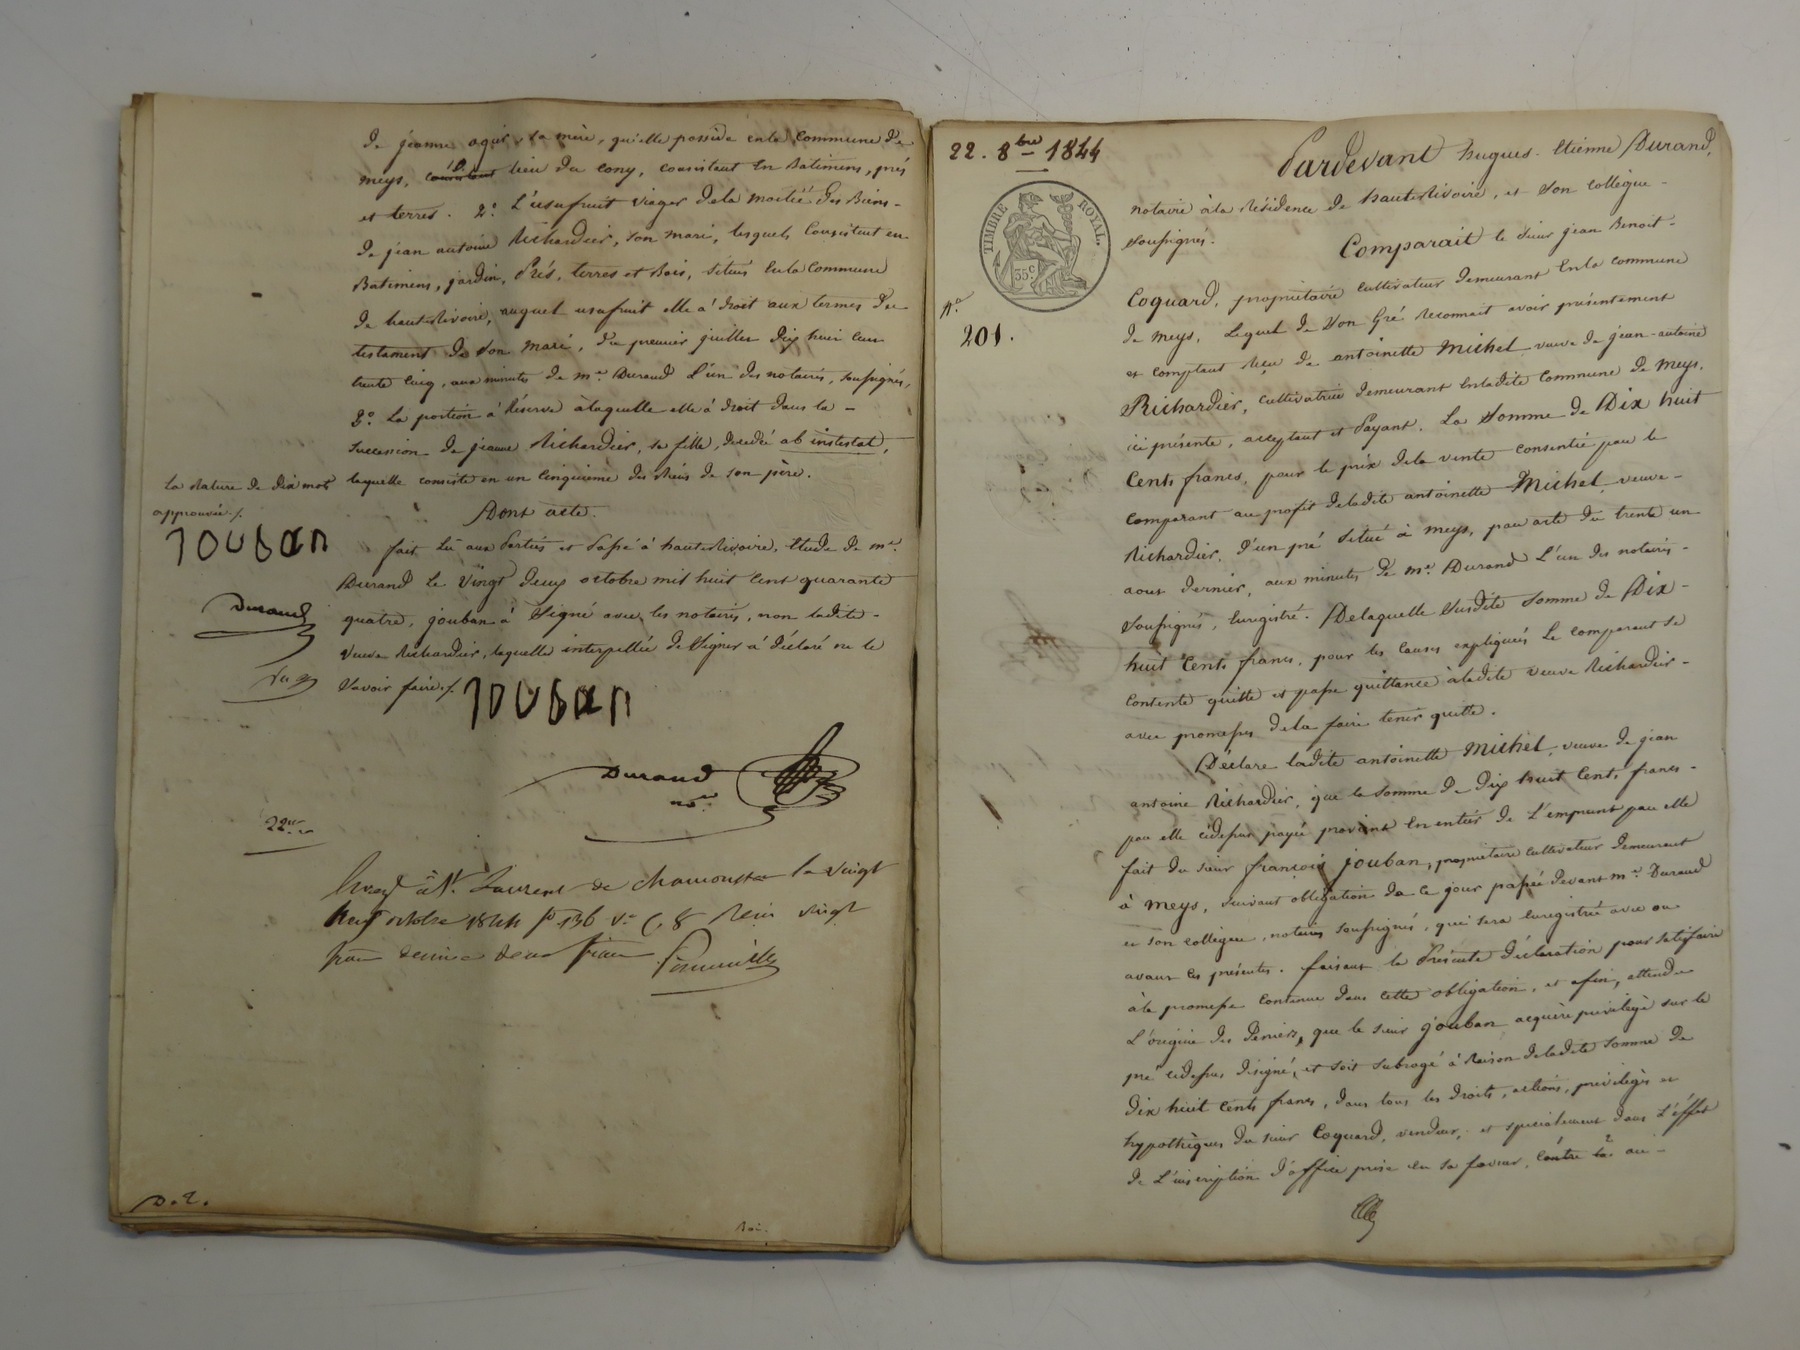 de jeanne agir, sa mère, qu'elle possède en la Commune de
meys, lieu du cony, consistant En Batimens, prés
et terres. 2.° L'usufruit viager dela moitié des Biens
de jean antoine Richardier, son mari, lesquels Consistent en
Batimens, jardin, Prés, terres et Bois, situés En la Commune
de hauteRivoire, auquel usufruit elle a droit aux termes du
testament de son mari, du premier juillet dix huit cent
trente cinq, aux minutes de me. Durand l'un des notaires, soussignés,
3.° La portion à Réserve à laquelle elle a droit dans la
succession de jeanne Richardier, sa fille, décédée ab instestat,
laquelle consiste en un Cinquième des Biens de son père.
la Rature de dix mots
approuvée ./.
jouban
Durand
Dont acte.
fait Lu aux Parties et Passé à hauteRivoire, Etude de me.
Durand le Vingt deux octobre mil huit Cent quarante
quatre, jouban a Signé avec les notaires, non ladite
Veuve Richardier, laquelle interpellée de Signer a déclaré ne le
Savoir faire ./.
jouban
Durand
no.re
22
à St. Laurent de chamousset le vingt
neuf octobre 1844 fo 136 Vo C. 8 Reçu vingt
D. 2.
22. 8bre 1844
TIMBRE ROYAL.
35 c.
N.o
201.
Pardevant hugues Etienne Durand,
notaire à la Résidence de hauteRivoire, et Son Collègue
Soussignés.
Comparait le Sieur jean Benoit
Coquard, propriétaire cultivateur demeurant En la commune
de meys, Lequel de Son Gré Reconnait avoir présentement
et comptant Reçu de antoinette Michel veuve de jean-antoine
Richardier, cultivatrice demeurant En ladite Commune de meys,
ici présente, acceptant et Payant. La Somme de Dix huit
Cents francs, pour le prix dela vente consentie par le
comparant au profit de ladite antoinette Michel, veuve
Richardier, d'un pré situé à meys, par acte du trente un
aout dernier, aux minutes de me. Durand l'un des notaires
Soussignés, Enregistré. De laquelle Susdite Somme de Dix
huit Cents francs, pour les Causes expliquées Le comparant Se
Contente quitte et passe quittance à ladite veuve Richardier
avec promesses de la faire tenir quitte.
Déclare ladite antoinette Michel, veuve de jean
antoine Richardier, que la Somme de dix huit Cents francs
par elle cidessus payée provient En entier de L'emprunt par elle
fait du sieur françois jouban, propriétaire cultivateur demeurant
à meys, suivant obligation de ce jour passée devant me. Durand
et son collègue, notaires soussignés, qui sera Enregistrée avec ou
avant les présentes. faisant la Présente déclaration pour satisfaire
à la promesse Contenue dans Cette obligation, et afin, attendu
L'origine des Deniers, que le sieur jouban acquière privilège sur le
pré cidessus désigné, et soit subrogé à Raison de ladite Somme de
dix huit Cents francs, dans tous les droits, actions, privilèges et
hypothèques du sieur Coquard, vendeur, et spécialement dans L'éffet
de L'inscription d'office prise en sa faveur, Contre au